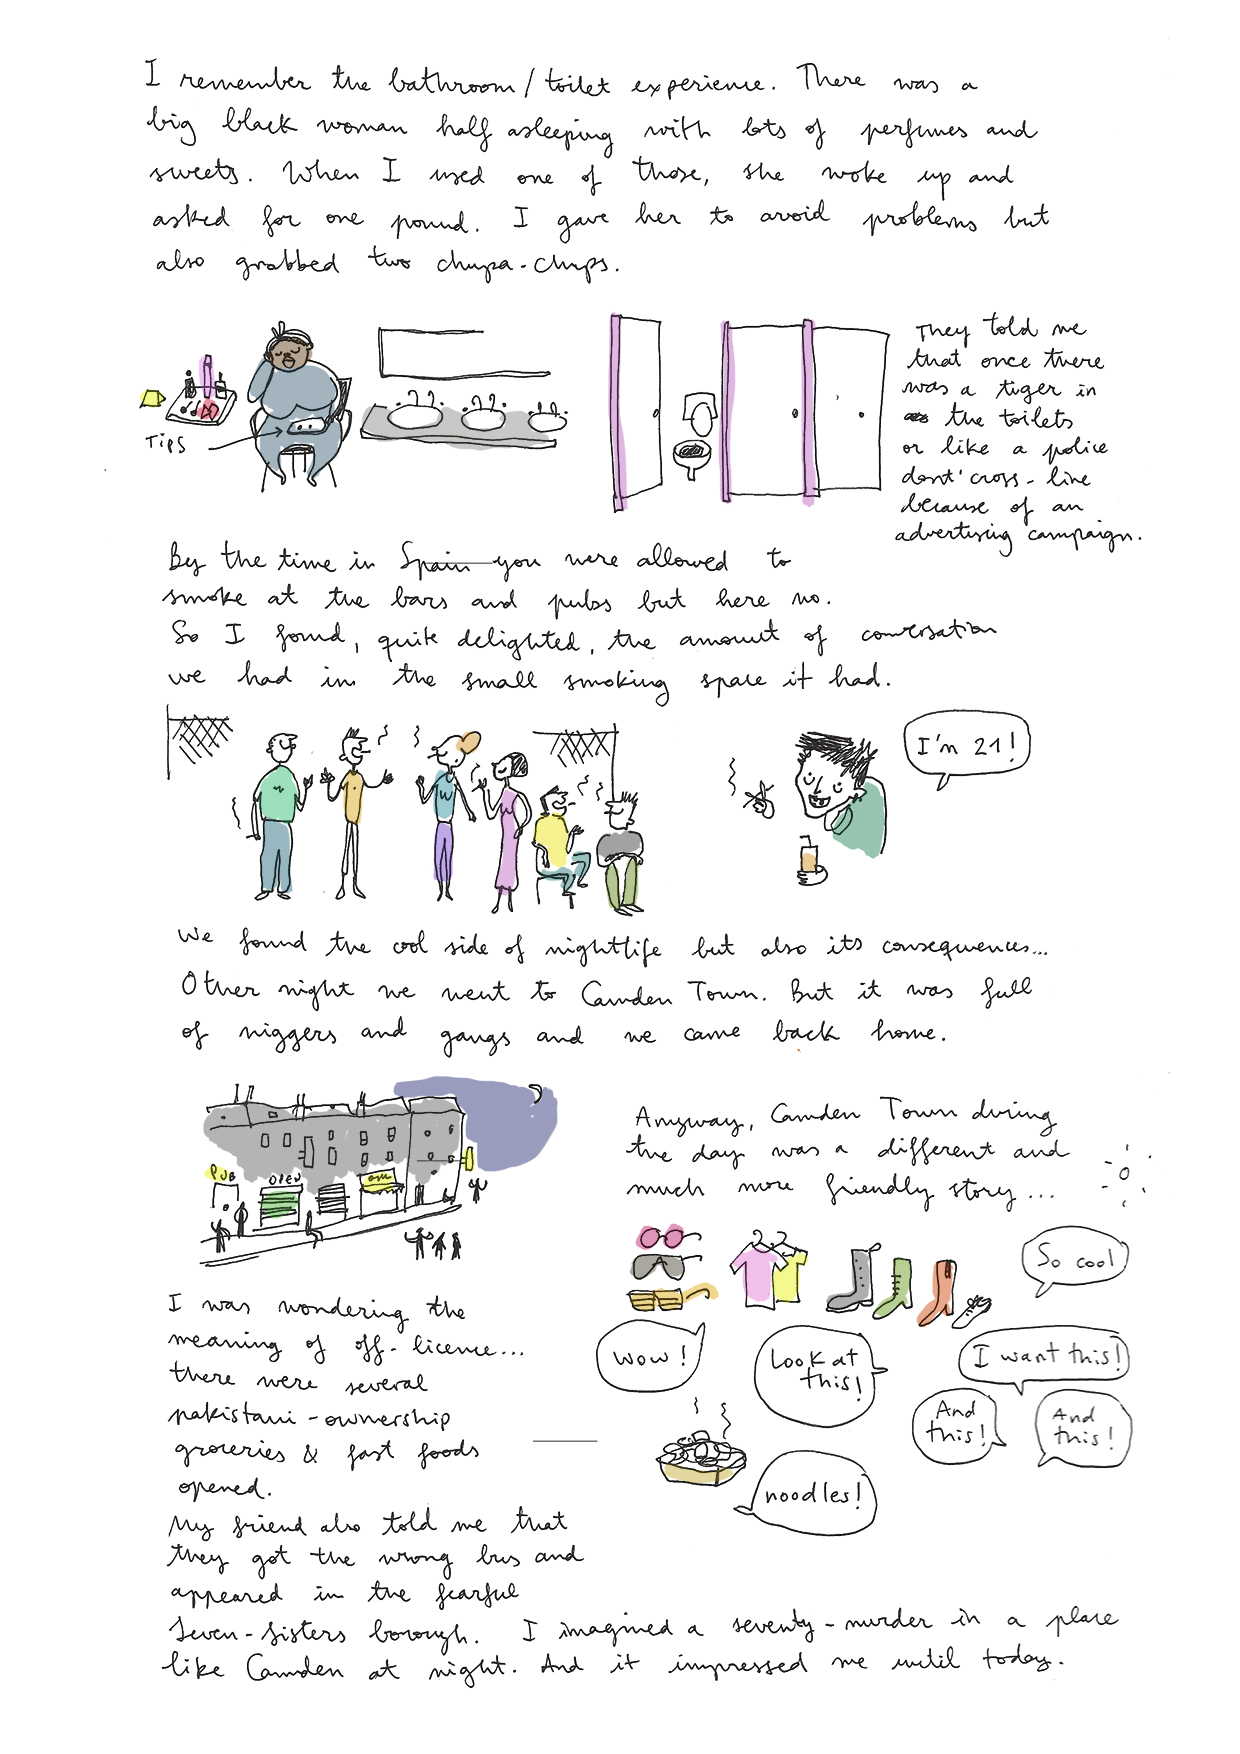 I remember the bathroom/toilet experience. There was a
big black woman half asleeping with lots of perfumes and
sweets. When I used one of those, she woke up and
asked for one pound. I gave her to avoid problems but
also grabbed two chupa-chups.
Tips
They told me
that once there
was a tiger in
the toilets
or like a police
dont' cross-line
because of an
advertising campaign.
By the time in Spain you were allowed to
smoke at the bars and pubs but here no.
So I found, quite delighted, the amount of conversation
we had in the small smoking space it had.
I'm 21!
We found the cool side of nightlife but also its consequences...
Other night we went to Camden Town. But it was full
of niggers and gangs and we came back home.
PUB
OPEN
Anyway, Camden Town during
the day was a different and
much more friendly story...
So cool
Wow!
Look at
this!
I want this!
And
this!
And
this!
noodles!
I was wondering the
meaning of off-licence...
there were several
pakistani-ownership
groceries & fast foods
opened.
My friend also told me that
they got the wrong bus and
appeared in the fearful
Seven-Sisters borough. I imagined a seventy-murder in a place
like Camden at night. And it impressed me until today.